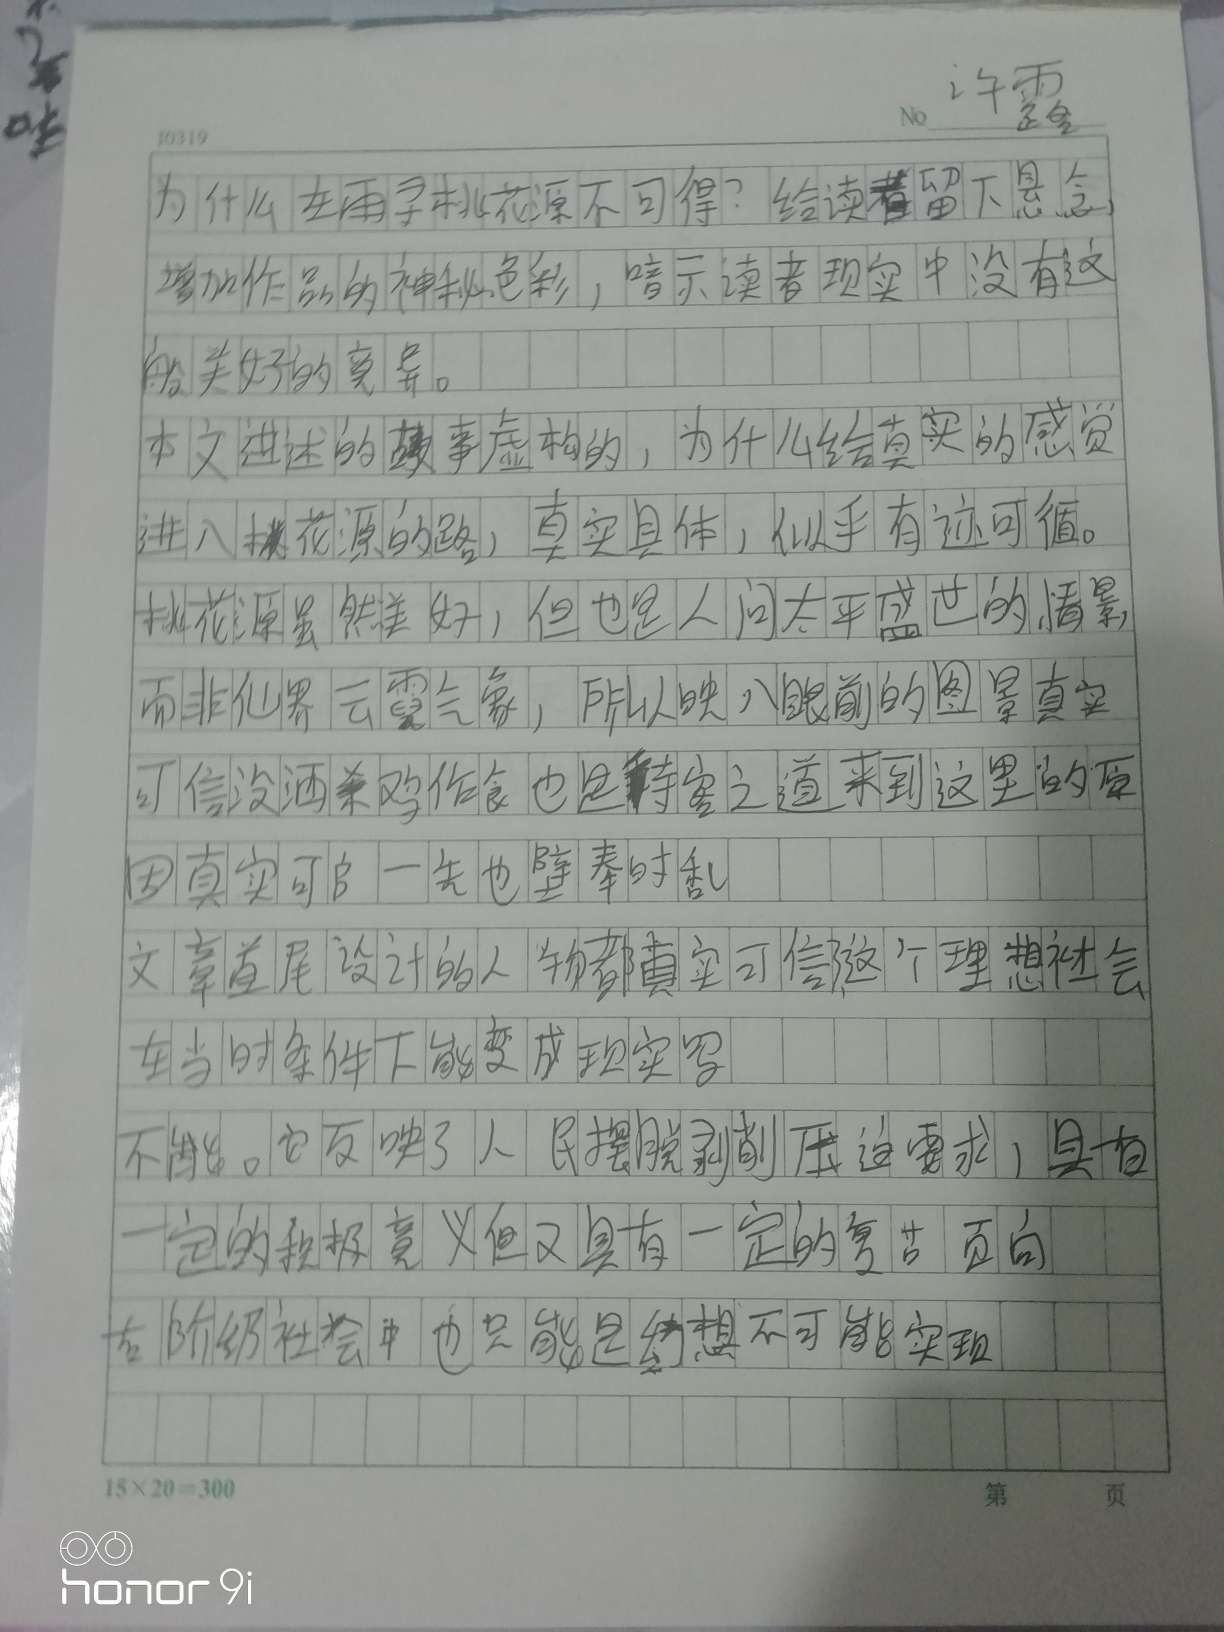 10319
No 许露
为什么在再寻桃花源不可得？给读者留下悬念，
增加作品的神秘色彩，暗示读者现实中没有这
般美好的竟异。
本文进述的故事虚构的，为什么给真实的感觉
进入桃花源的路，真实具体，似乎有迹可循。
桃花源虽然美好，但也是人间太平盛世的情景，
而非仙界云霓气象，所以映入眼前的图景真实
可信没酒杀鸡作食也是待客之道来到这里的原
因真实可 一先也 奉时乱
文章首尾设计的人物都真实可信 这个理想社会
在当时条件下能变成现实吗
不能。它反映了人民摆脱剥削压迫要求，具有
一定的积极意义但又具有一定的 苦 向
在阶级社会中也只能是幻想不可能实现
15×20=300
第 页
honor 9i